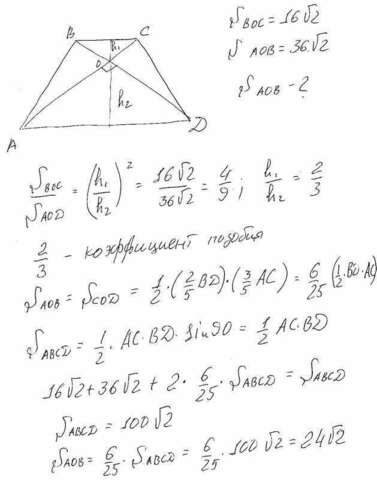 B C
h₁
O
h₂
A D
S BOC = 16√2
S AOB = 36√2
S AOB - ?
S BOC / S AOD = (h₁/h₂)² = 16√2/36√2 = 4/9 ; h₁/h₂ = 2/3
2/3 - коэффициент подобия
S AOB = S COD = 1/2 · (2/5 BD) · (3/5 AC) = 6/25 (1/2 · BD · AC)
S ABCD = 1/2 · AC · BD · Sin 90 = 1/2 AC · BD
16√2 + 36√2 + 2 · 6/25 · S ABCD = S ABCD
S ABCD = 100√2
S AOB = 6/25 · S ABCD = 6/25 · 100√2 = 24√2